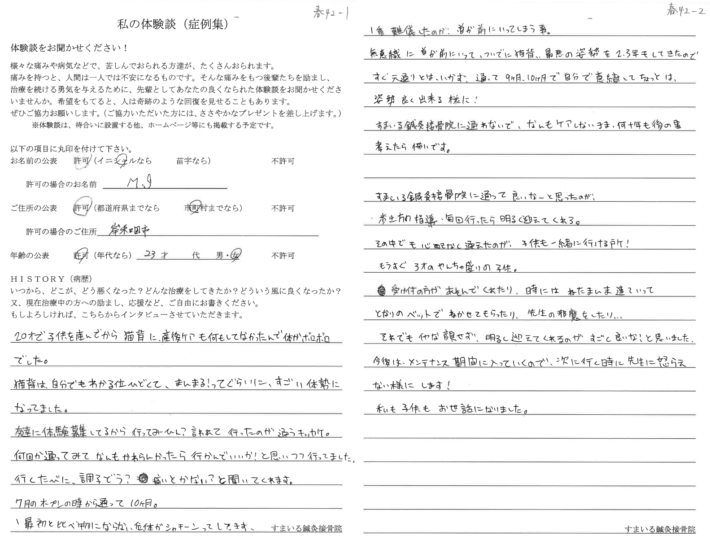 春42-1
私の体験談（症例集）
体験談をお聞かせください！
様々な痛みや病気などで、苦しんでおられる方達が、たくさんおられます。
痛みを持つと、人間は一人では不安になるものです。そんな痛みをもつ後輩たちを励まし、
治療を続ける勇気を与えるために、先輩としてあなたの良くなられた体験談をお聞かせくださ
いませんか。希望をもてると、人は奇跡のような回復を見せることもあります。
ぜひご協力お願いします。（ご協力いただいた方には、ささやかなプレゼントを差し上げます。）
※体験談は、待合いに設置する他、ホームページ等にも掲載する予定です。
以下の項目に丸印を付けて下さい。
お名前の公表 許可（イニシャルなら 苗字なら） 不許可
許可の場合のお名前 M.Y
ご住所の公表 許可（都道府県までなら 市町村までなら） 不許可
許可の場合のご住所 岸和田市
年齢の公表 許可（年代なら） 23 才 代 男・女 不許可
ＨＩＳＴＯＲＹ（病歴）
いつから、どこが、どう悪くなった？どんな治療をしてきたか？どういう風に良くなったか？
又、現在治療中の方への励まし、応援など、ご自由にお書きください。
もしよろしければ、こちらからインタビューさせていただきます。
20才で子供を産んでから猫背に、産後ケアも何もしてなかったんで体がボロボロ
でした。
猫背は、自分でもわかる位ひどくて、まんまる！ってぐらいに、すごい体勢に
なってました。
友達に体験談してるから行ってみーひん？言われて行ったのが通うキッカケ。
何回か通ってみてなんもかわらんかったら行かんでいいか！と思いつつ行ってました。
行くたびに、調子どう？痛いとかない？と聞いてくれます。
7月のオープンの時から通って10ヶ月。
最初と比べ物にならない位体がシャキーンってしてます。
すまいる鍼灸接骨院
春42-2
1番難儀したのが、首が前にいってしまう事。
無意識に首が前にいって、ついでに猫背、最悪の姿勢を2.3年もしてきたので
すぐ元通りとは、いかず、通って9ヶ月、10ヶ月で自分で意識してちょっとは、
姿勢良く出来る様に！
すまいる鍼灸接骨院に通わないで、なんもケアしないまま、何十年も後の事
考えたら怖いです。
すまいる鍼灸接骨院に通って良いなーと思ったのが、
歩き方の指導・毎回行ったら明るく迎えてくれる。
その中でも心配なく通えたのが、子供も一緒に行ける所！
もうすぐ3才のやんちゃ盛りの子供。
受付の方があそんでくれたり、時にはねたまんま連れていって
となりのベットでねかせてもらったり、先生の邪魔をしたり...
それでもイヤな顔せず、明るく迎えてくれるのがすごく良いな！と思いました。
今後は、メンテナンス期間に入っていくので、次に行く時に先生に怒られ
ない様にします！
私も子供もお世話になりました。
すまいる鍼灸接骨院